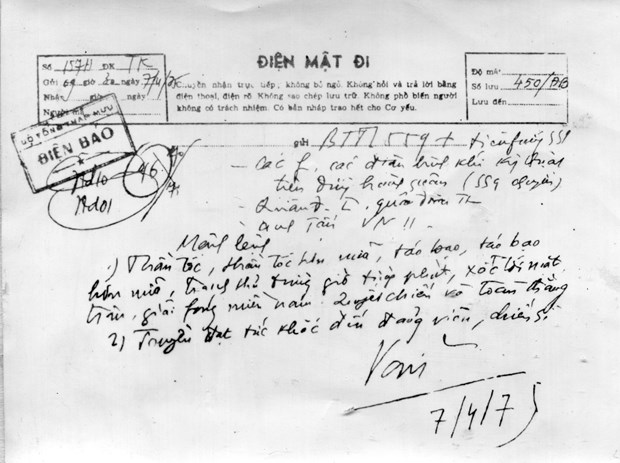 Số 157H ĐK TK
Gửi giờ ngày 7/4/75
Nhận giờ ngày
Người mã
ĐIỆN MẬT ĐI
Chuyển nhận trực tiếp; không bỏ ngỏ. Không hỏi và trả lời bằng
điện thoại, điện rõ Không sao chép lưu trữ. Không phổ biến người
không có trách nhiệm. Có bản nháp trao hết cho Cơ yếu.
Độ mật
Số lưu 450/ĐB
Lưu đến
BỘ TỔNG THAM MƯU
ĐIỆN BÁO
46
gửi BTTL 559 + tiền phương 559
- Các f, các đơn vị binh khí kỹ thuật
trên đường hành quân (559 chuyển)
- Quân đ. I, quân đoàn II
Mệnh lệnh
1) Thần tốc, thần tốc hơn nữa, táo bạo, táo bạo
hơn nữa, tranh thủ từng giờ từng phút, xốc tới mặt
trận, giải fóng miền nam. Quyết chiến và toàn thắng
2) Truyền đạt tức khắc đến đảng viên, chiến sĩ
Văn
7/4/75